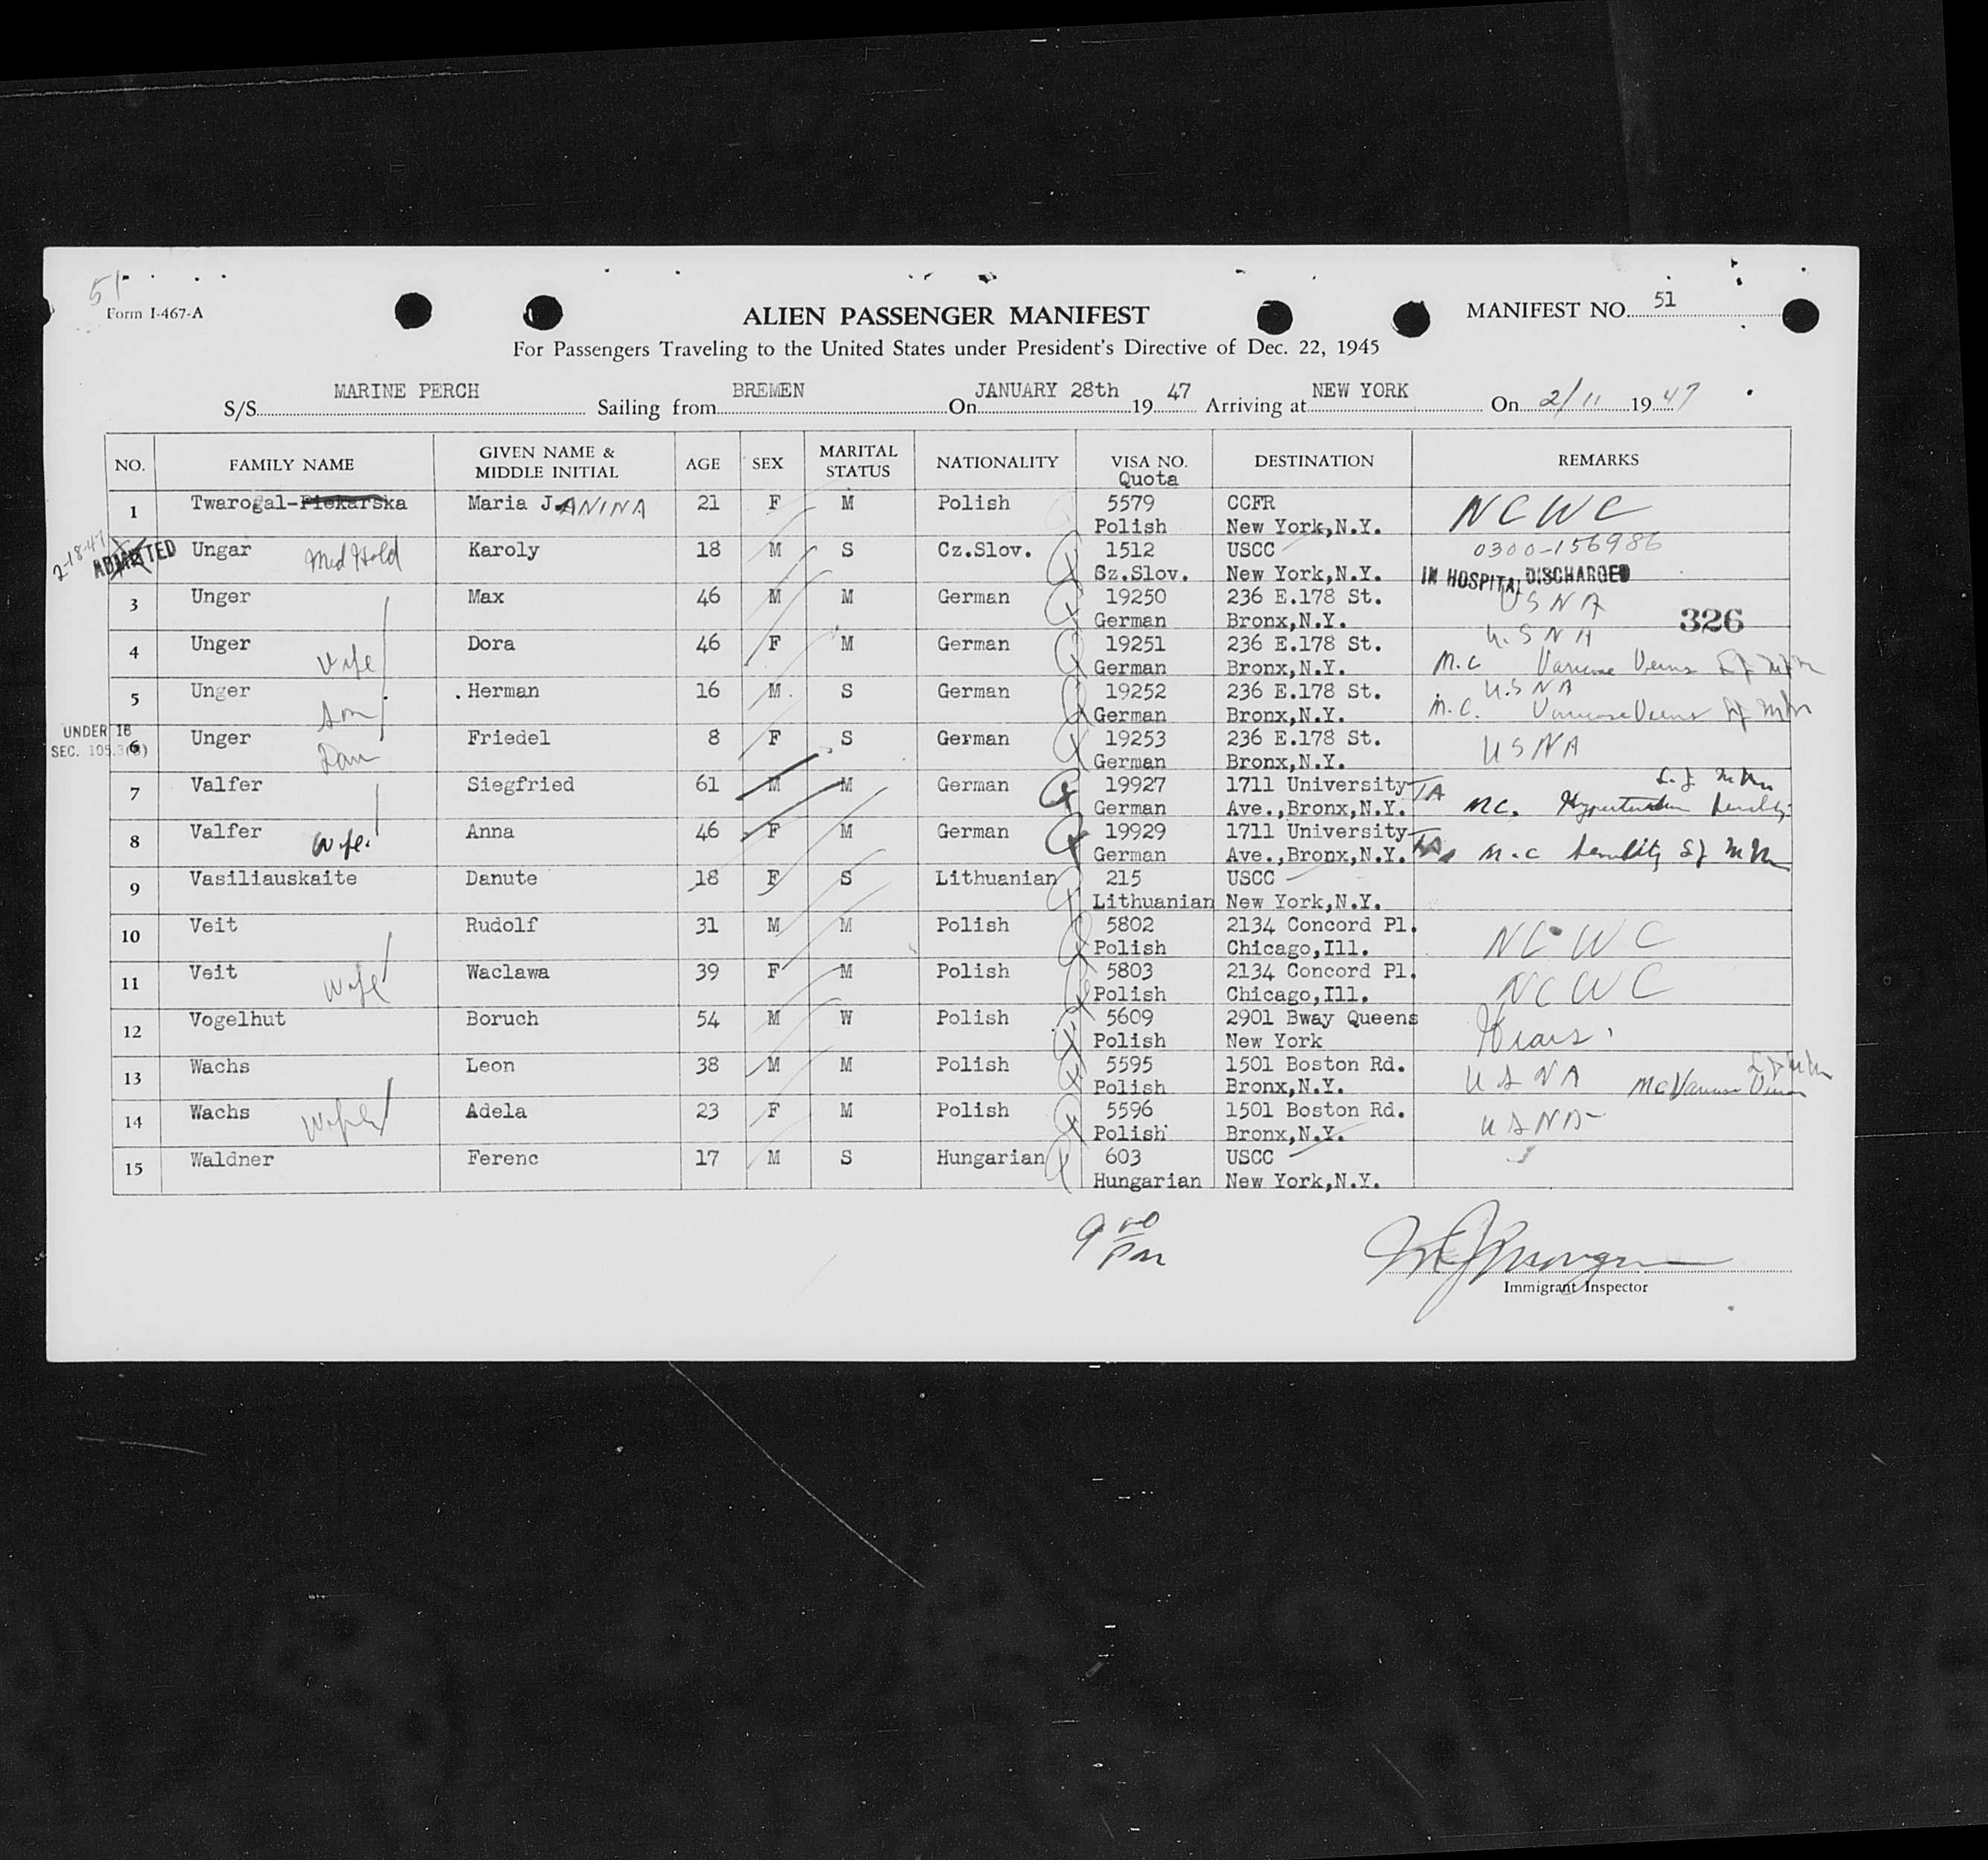 51
Form I-467-A
ALIEN PASSENGER MANIFEST
MANIFEST NO. 51
For Passengers Traveling to the United States under President's Directive of Dec. 22, 1945
S/S MARINE PERCH Sailing from BREMEN On JANUARY 28th 19 47 Arriving at NEW YORK On 2/11 19 47
NO. FAMILY NAME GIVEN NAME & MIDDLE INITIAL AGE SEX MARITAL STATUS NATIONALITY VISA NO. Quota DESTINATION REMARKS
1 Twarogal-Piekarska Maria JANINA 21 F M Polish 5579 CCFR NCWC
Polish New York,N.Y.
2-18-47 ADMITTED Ungar Med Hold Karoly 18 M S Cz.Slov. 1512 USCC 0300-156986
Cz.Slov. New York,N.Y. IN HOSPITAL DISCHARGED
3 Unger Max 46 M M German 19250 236 E.178 St. USNA
German Bronx,N.Y. 326
4 Unger Wife Dora 46 F M German 19251 236 E.178 St. U.S NA
German Bronx,N.Y. M.C Varicose Veins
5 Unger Son Herman 16 M S German 19252 236 E.178 St. U.S NA
German Bronx,N.Y. M.C. Varicose Veins
UNDER 16
SEC. 105.3(B)
6 Unger Dau Friedel 8 F S German 19253 236 E.178 St. USNA
German Bronx,N.Y.
7 Valfer Siegfried 61 M M German 19927 1711 University TA
German Ave.,Bronx,N.Y. MC. Hypertension Senility
8 Valfer Wife. Anna 46 F M German 19929 1711 University
German Ave.,Bronx,N.Y. TA M.C Senility
9 Vasiliauskaite Danute 18 F S Lithuanian 215 USCC
Lithuanian New York,N.Y.
10 Veit Rudolf 31 M M Polish 5802 2134 Concord Pl. NCWC
Polish Chicago,Ill.
11 Veit Wife Waclawa 39 F M Polish 5803 2134 Concord Pl. NCWC
Polish Chicago,Ill.
12 Vogelhut Boruch 54 M W Polish 5609 2901 Bway Queens Hias
Polish New York
13 Wachs Leon 38 M M Polish 5595 1501 Boston Rd. USNA
Polish Bronx,N.Y. Mc Varicose Veins
14 Wachs Wife Adela 23 F M Polish 5596 1501 Boston Rd. USNA
Polish Bronx,N.Y.
15 Waldner Ferenc 17 M S Hungarian 603 USCC
Hungarian New York,N.Y.
9 00 PM
Immigrant Inspector